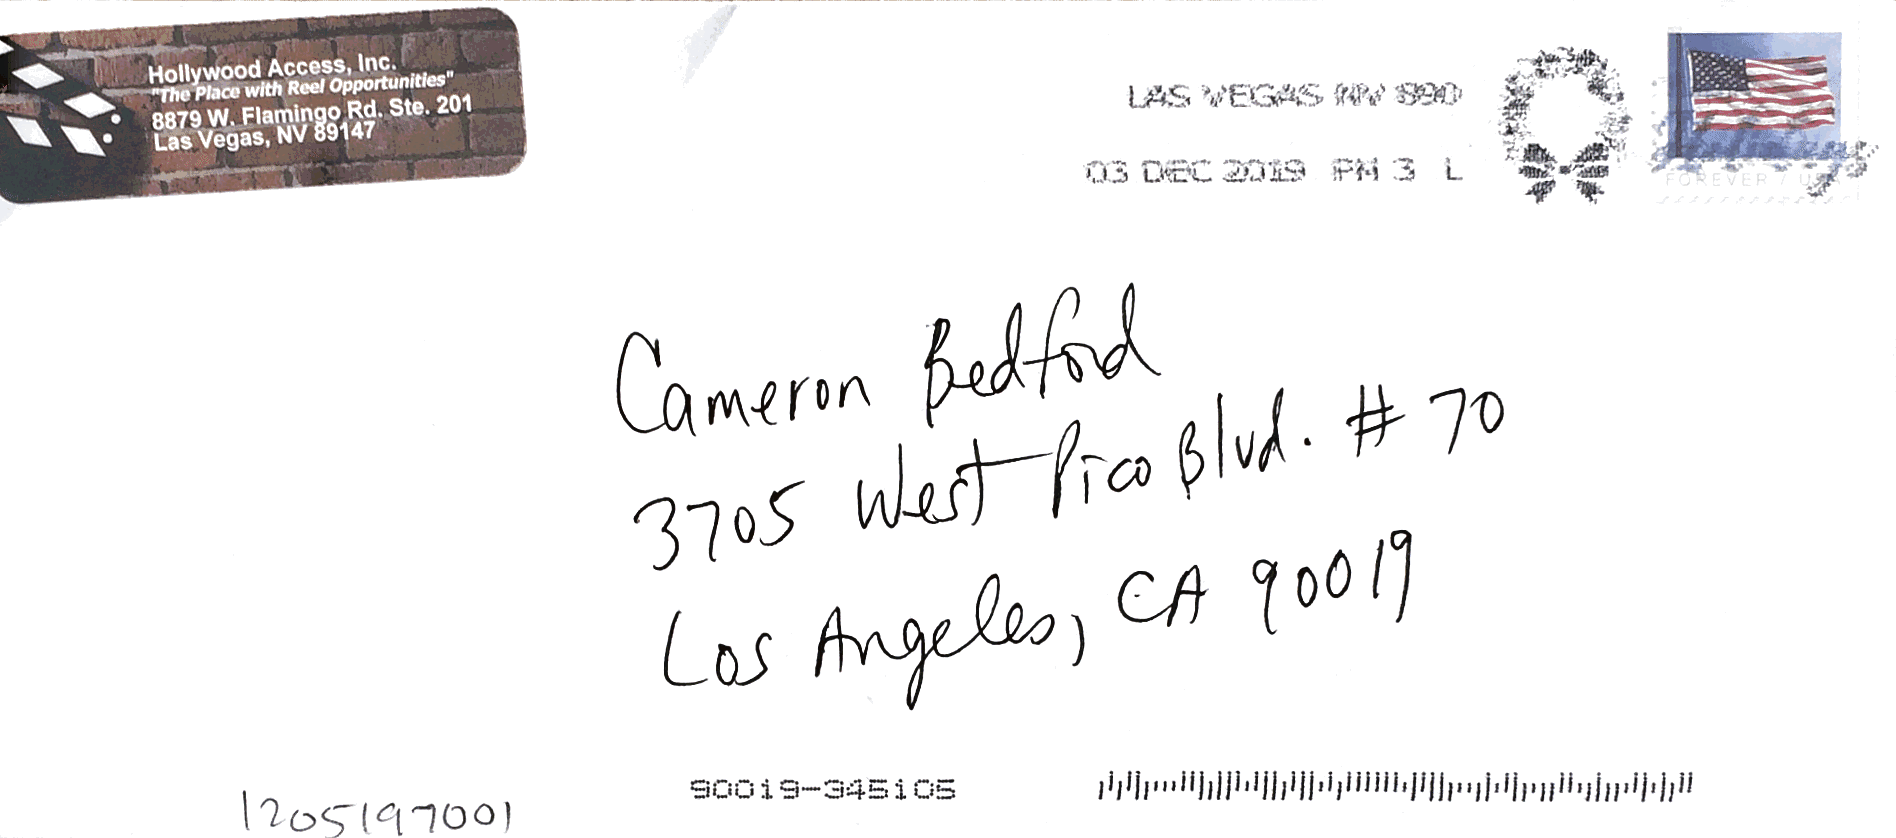 Hollywood Access, Inc.
"The Place with Reel Opportunities"
8879 W. Flamingo Rd. Ste. 201
Las Vegas, NV 89147
LAS VEGAS NV 890
03 DEC 2019 PM 3 L
FOREVER / USA
Cameron Bedford
3705 West Pico Blvd. # 70
Los Angeles, CA 90019
90019-345105
1205197001